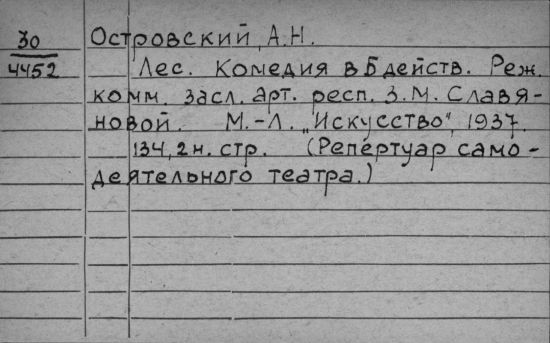 30
4452
Островский, А.Н.
Лес. Комедия в 5 действ. Реж.
комм. засл. арт. респ. З.М. Славя-
новой. М.-Л. "Искусство", 1937.
134, 2 н. стр. (Репертуар само-
деятельного театра.)